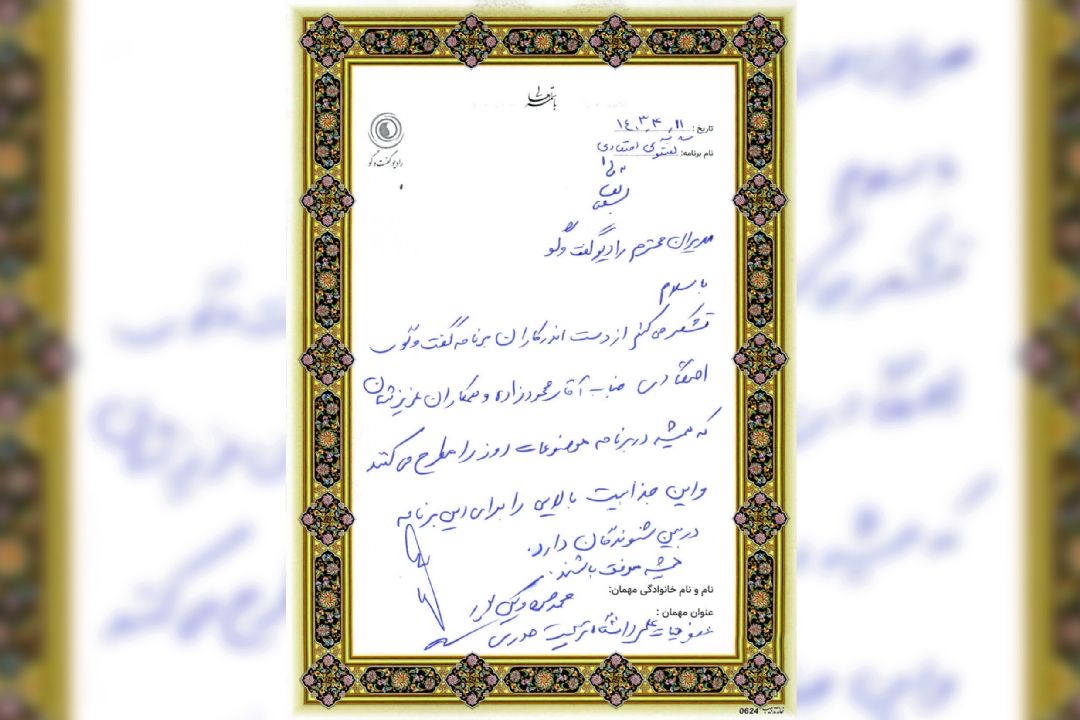 باسمه تعالی
رادیو گفت‌و‌گو
تاریخ: ۱۴۰۳,۴,۱۱
نام برنامه: گفتگوی اقتصادی
مدیران محترم رادیو گفت و گو
با سلام
تشکر می کنم از دست اندرکاران برنامه گفت و گوی
اقتصادی جناب آقای محمودزاده و همکاران عزیزشان
که همیشه در برنامه موضوعات روز را مطرح می کنند
و این جذابیت بالایی را برای این برنامه
در بین شنوندگان دارد.
همیشه موفق باشند.
نام و نام خانوادگی مهمان: محمدحسن
عنوان مهمان:
عضو هیات علمی دانشگاه تربیت مدرس
0624